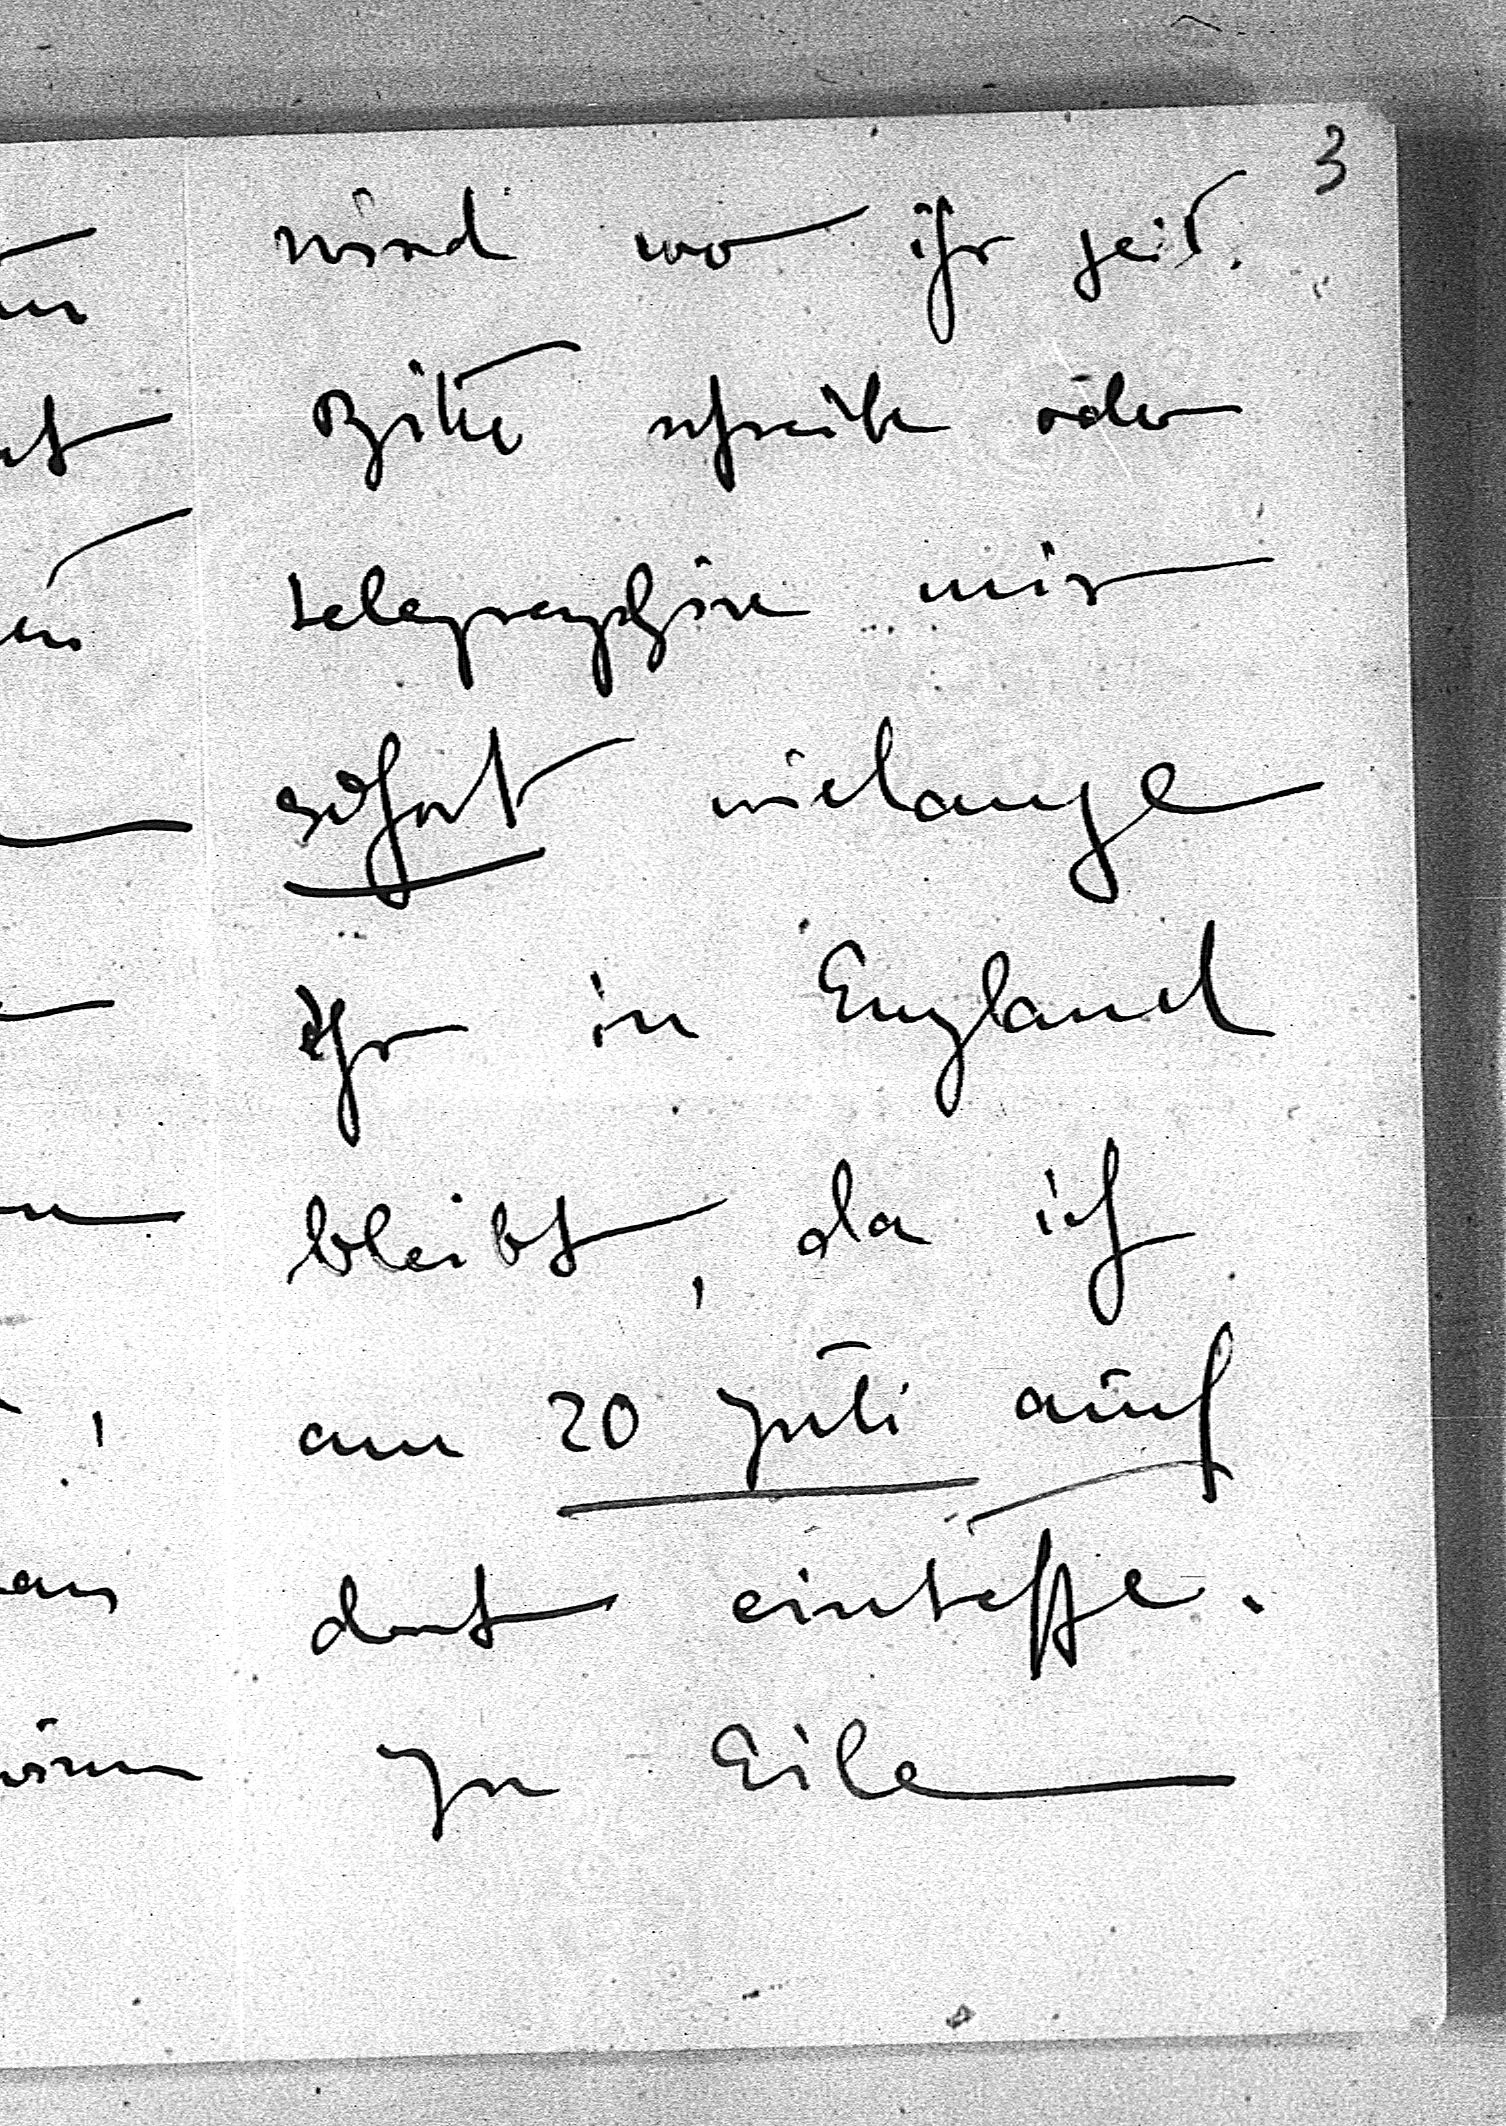 3
wird wo ihr seid.
Bitte schreibe oder
telegraphire mir
sofort wielange
Ihr in England
bleibt, da ich
am 20 Juli auch
dort eintreffe.
In Eile